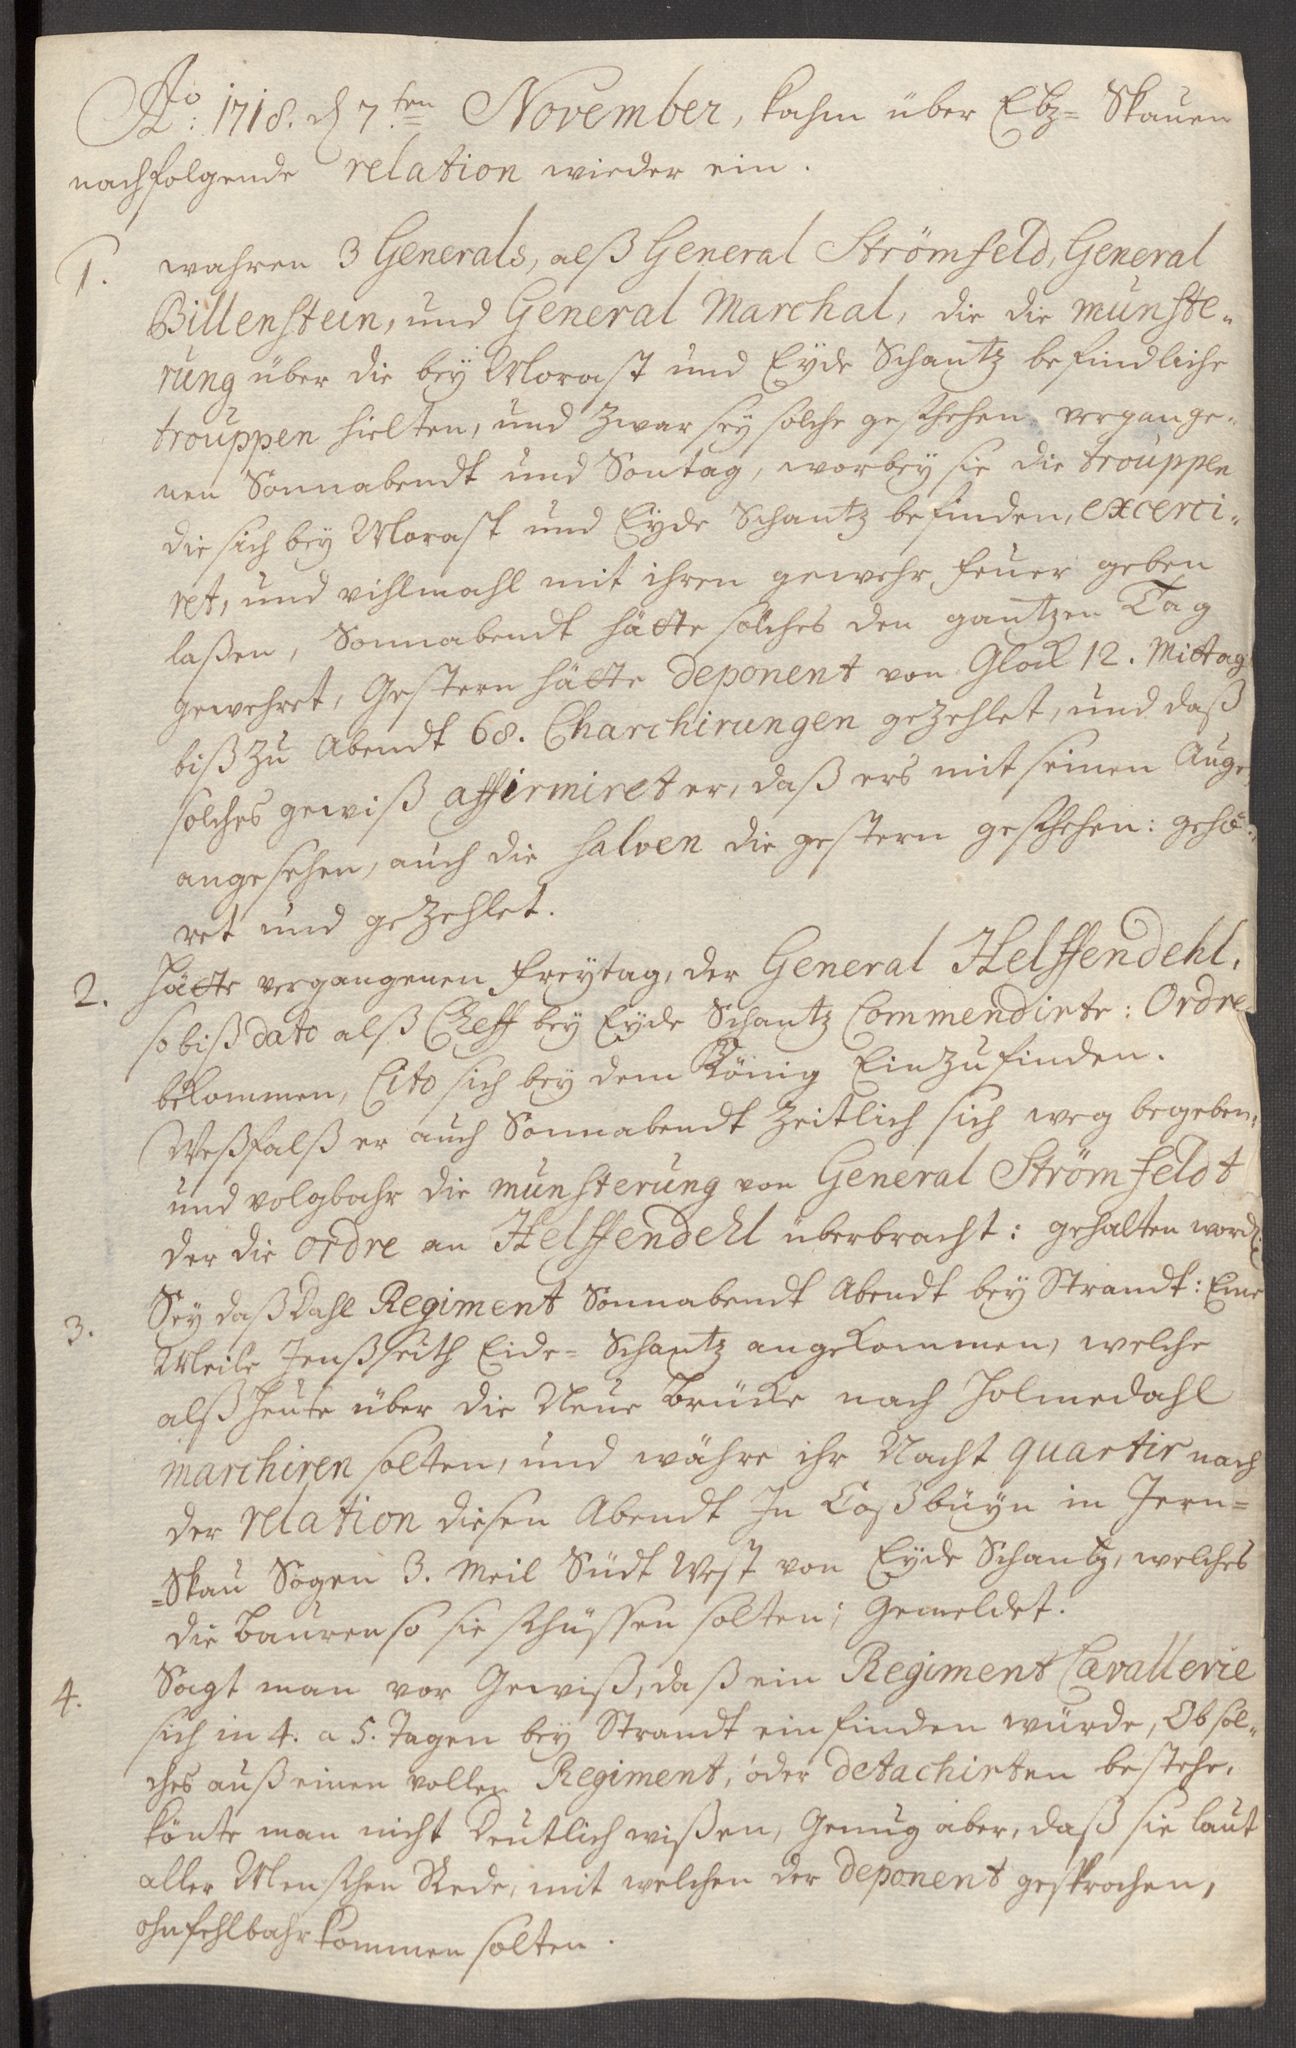 Ao: 1718. d 7ten November, kahm über Ebz= Skauen
nachfolgende relation wieder ein.
1. wahren 3 Generals, alß General Strömfeld, General
Billenstein, und General Marchal, die die munste-
rung über die bey Morast und Eÿde Schantz befindliche
trouppen hielten, und zwar seÿ solche geschehen vergange-
nen Sonnabendt und Sontag, worbeÿ sie die trouppen
die sich beÿ Morast und Eÿde Schantz befinden, excerci-
ret, und vihlmahl mit ihren gewehr feuer geben
laßen, Sonnabendt hätte solches den gantzen Tag
gewehret, Gestern hätte deponent von Glock 12. Mittag
biß zu Abendt 68. Charchirungen gezehlet, und daß
solches gewiß affirmiret er, daß ers mit seinen Auge,
angesehen, auch die salven die gestern geschehen: gehö-
ret und gezehlet.
2. hätte vergangenen freytag, der General Helffendehl,
so biß dato alß Cheff beÿ Eÿde Schantz Commendirte: Ordre
bekommen, Cito sich beÿ dem König Einzufinden.
Weßfalß er auch Sonnabendt Zeitlich sich weg begeben,
und volgbahr die munsterung von General Strömfeldt
der die ordre an Helffendehl überbracht: gehalten word:
3. Seÿ daß Dahl Regiment Sonnabendt Abendt beÿ Strandt: Eine
Meile Jenßseith Eide= Schantz angekommen, welche
alß heute über die Neue brücke nach Holmedahl
marchiren solten, und währe ihr Nacht quartir nach
der relation diesen Abendt In Coßbüÿn in Jern=
=Skau Sogen 3. Meil Südt West von Eÿde Schantz, welches
die bauren so sie schüssen solten; Gemeldet.
4. Sagt man vor Gewiß, daß ein Regiment Cavallerie
sich in 4. a 5. Tagen beÿ Strandt einfinden würde, Ob sol-
ches auß einen vollen Regiment, oder detachirten bestehe,
könte man nicht Deutlich wißen, Genug aber, daß sie laut
aller Menschen Rede, mit welchen der deponent gesprochen,
ohnfehlbahr kommen solten.